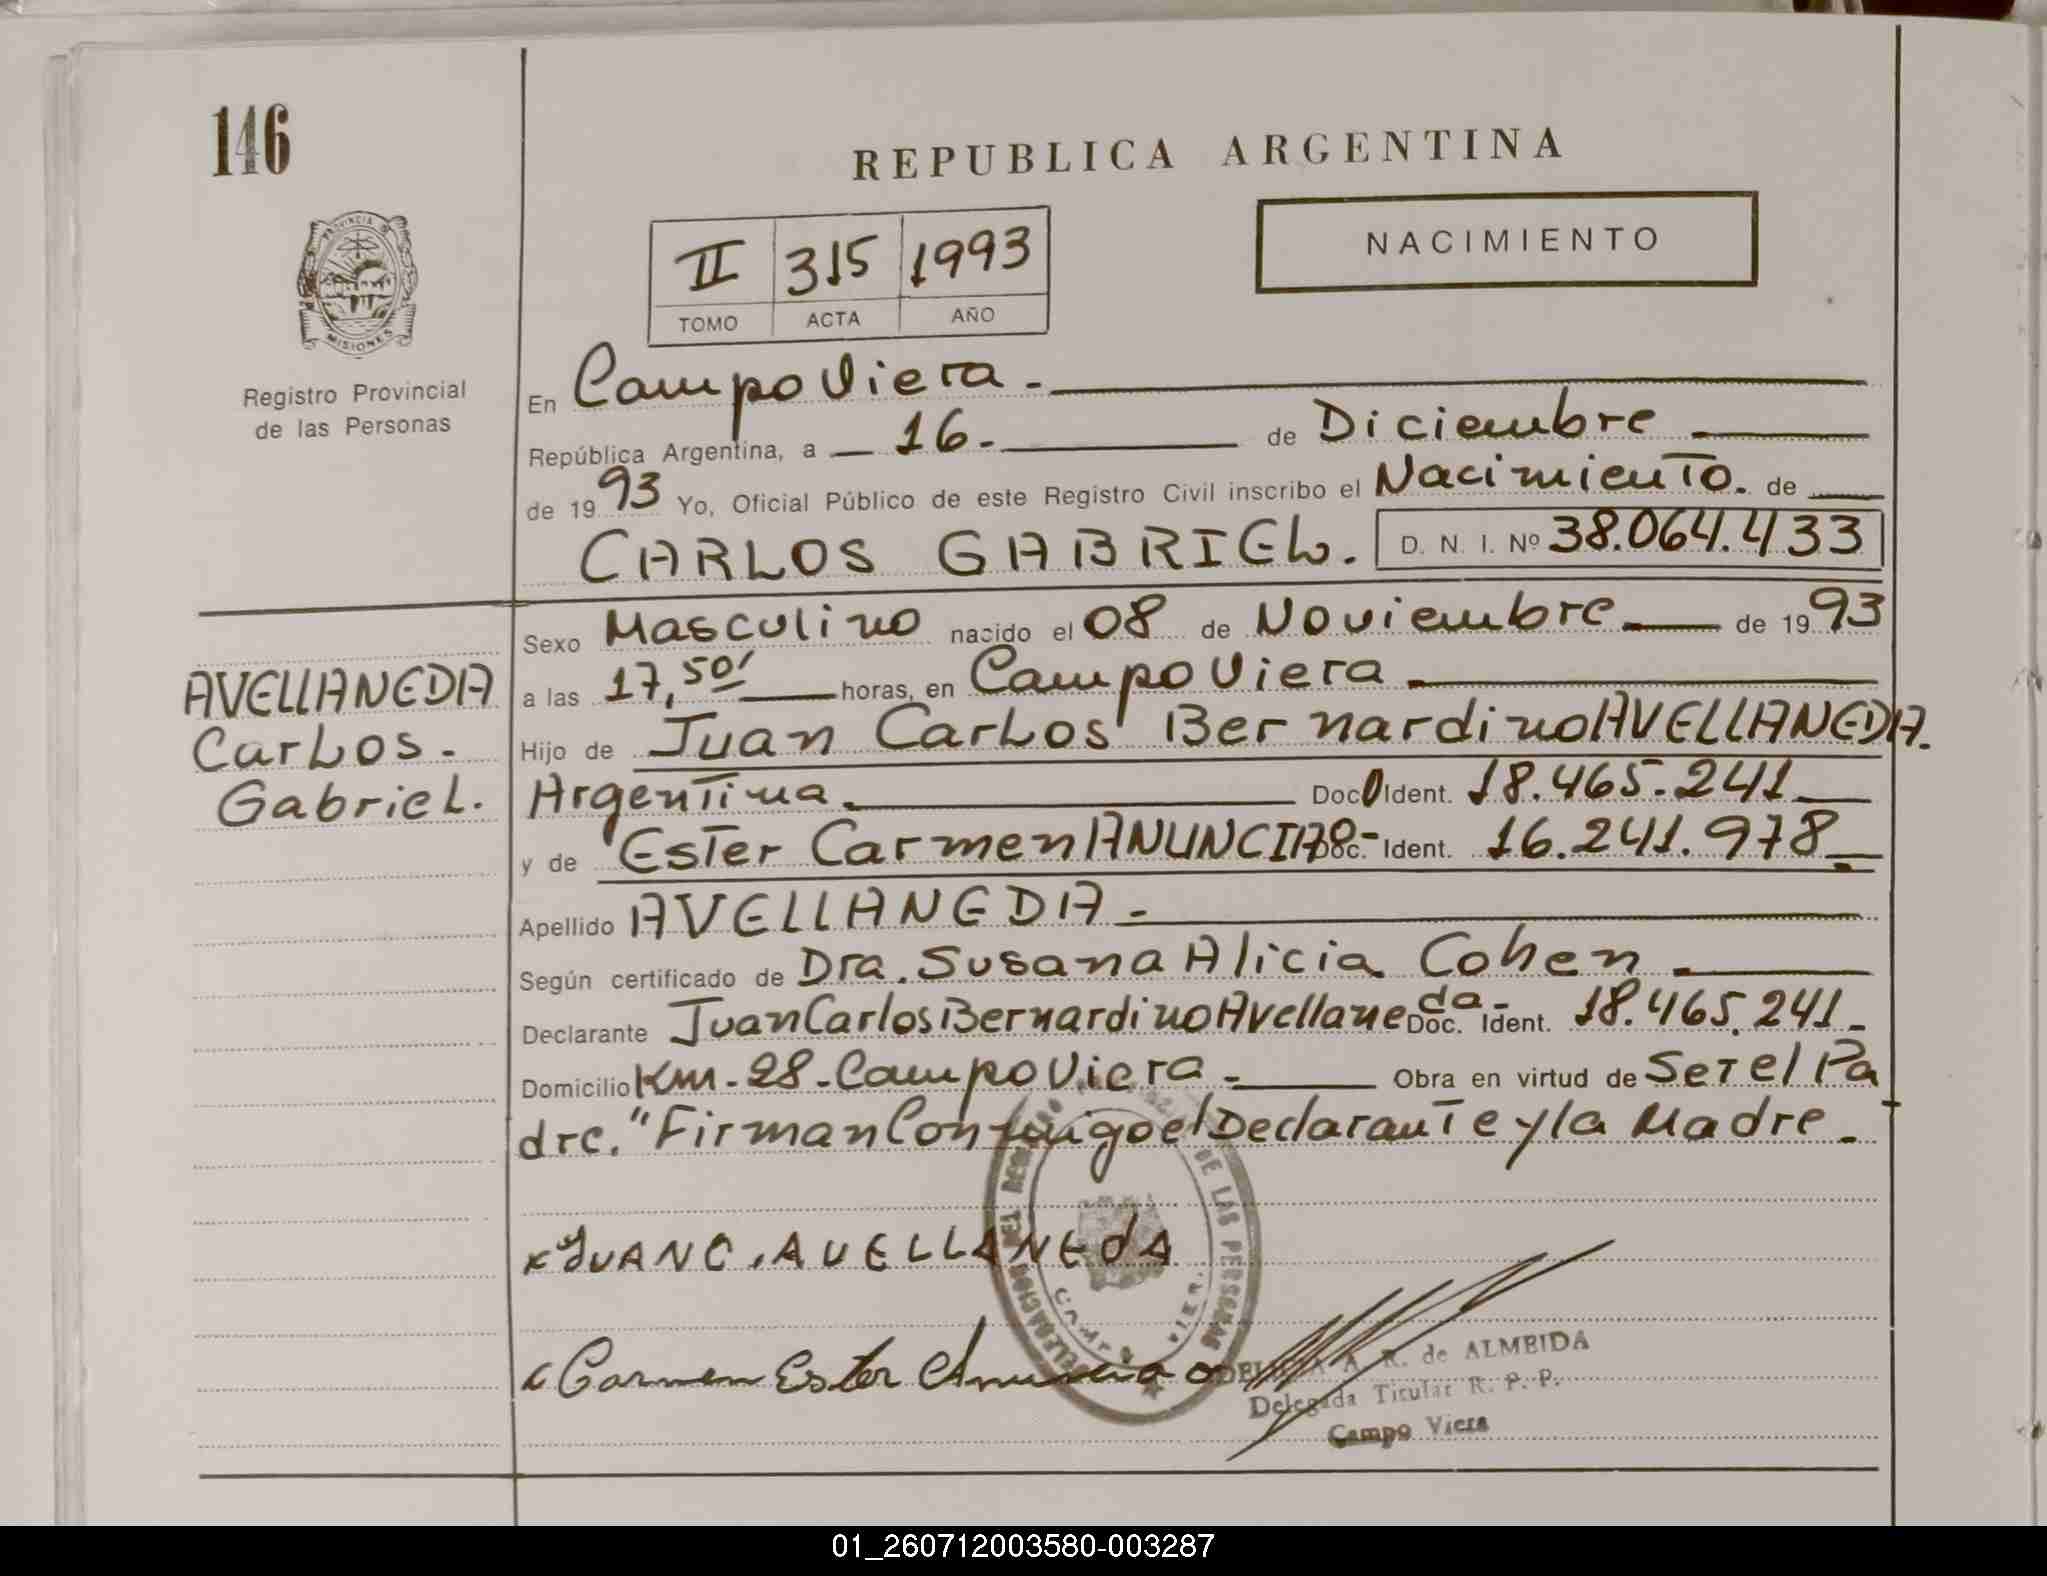 146
REPUBLICA ARGENTINA
NACIMIENTO
II 315 1993
TOMO ACTA AÑO
PROVINCIA DE
MISIONES
Registro Provincial
de las Personas
En Campo Viera.-
República Argentina, a - 16.- de Diciembre
de 1993 Yo, Oficial Público de este Registro Civil inscribo el Nacimiento. de
CARLOS GABRIEL. D. N. I. Nº 38.064.433
Sexo Masculino nacido el 08 de Noviembre de 1993
AVELLANEDA
Carlos.-
Gabriel.
a las 17,50' horas, en Campo Viera.
Hijo de Juan Carlos Bernardino AVELLANEDA.
Argentina. Doc Ident. 18.465.241
y de Ester Carmen ANUNCIAO.- Doc. Ident. 16.241.978
Apellido AVELLANEDA.-
Según certificado de Dra. Susana Alicia Cohen.
Declarante Juan Carlos Bernardino Avellaneda- Doc. Ident. 18.465.241.
Domicilio Km-28-Campo Viera.- Obra en virtud de Ser el Pa
dre. "Firman Conmigo el Declarante y la Madre.
JUAN C. AVELLANEdA
Carmen Ester Anunciao
DELEGACION DEL REGISTRO DE LAS PERSONAS
CAMPO VIER
A. R. de ALMEIDA
Delegada Titular R. P. P.
Campo Viera
01_260712003580-003287